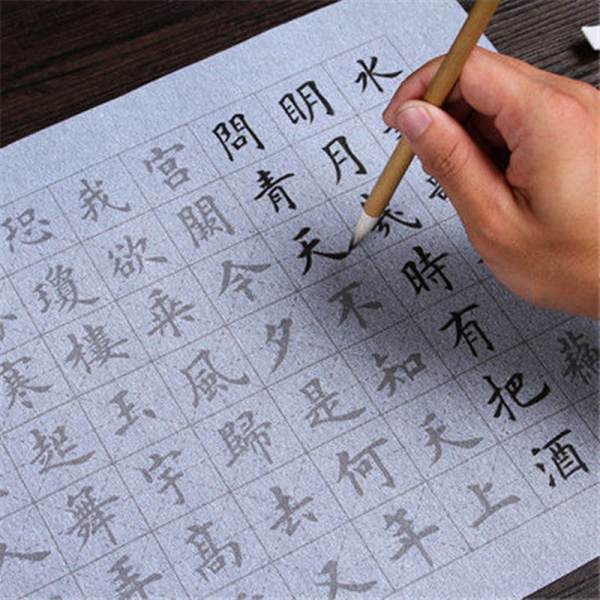 水
明月幾時有把酒
問青天不知天上
宮闕今夕是何年
我欲乘風歸去又
恐瓊樓玉宇高
寒起舞弄
人